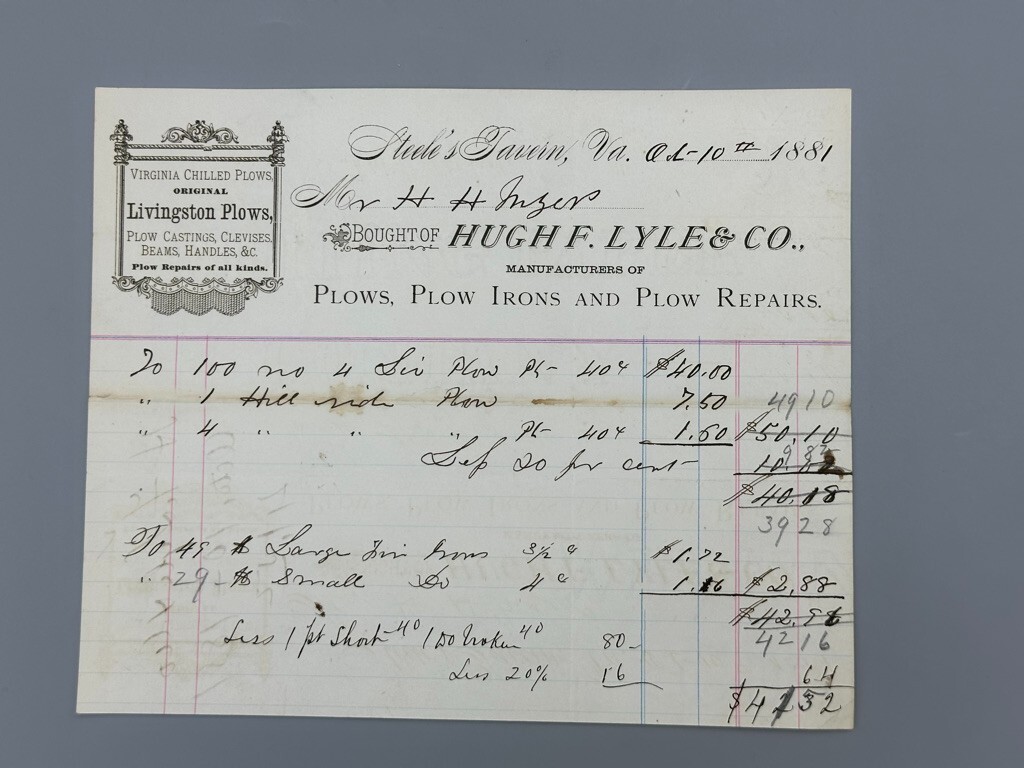 VIRGINIA CHILLED PLOWS,
ORIGINAL
Livingston Plows,
PLOW CASTINGS, CLEVISES,
BEAMS, HANDLES, &C.
Plow Repairs of all kinds.
Steele's Tavern, Va. Oct-10th 1881
Mr H H
BOUGHT OF HUGH F. LYLE & CO.,
MANUFACTURERS OF
PLOWS, PLOW IRONS AND PLOW REPAIRS.
To 100 no 4 Liv Plow Pt- 40¢ $40.00
" 1 Hill side Plow 7.50 4910
" 4 " " " Pt- 40¢ 1.60 $50.10
20 per cent 10. 982
$40.18
3928
To 49 Large Irons 3½ ¢ $1.72
" 29 Small Do 4 ¢ 1.16 $2.88
$42.96
Less 1 pt Short 40 1 Do broken 40 80 4216
Less 20% 16 64
$4152